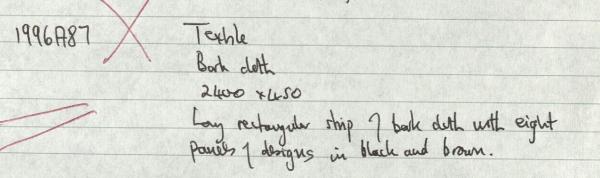 1996A87 Textile
Bark cloth
2400 x 450
Long rectangular strip of bark cloth with eight
panels of designs in black and brown.